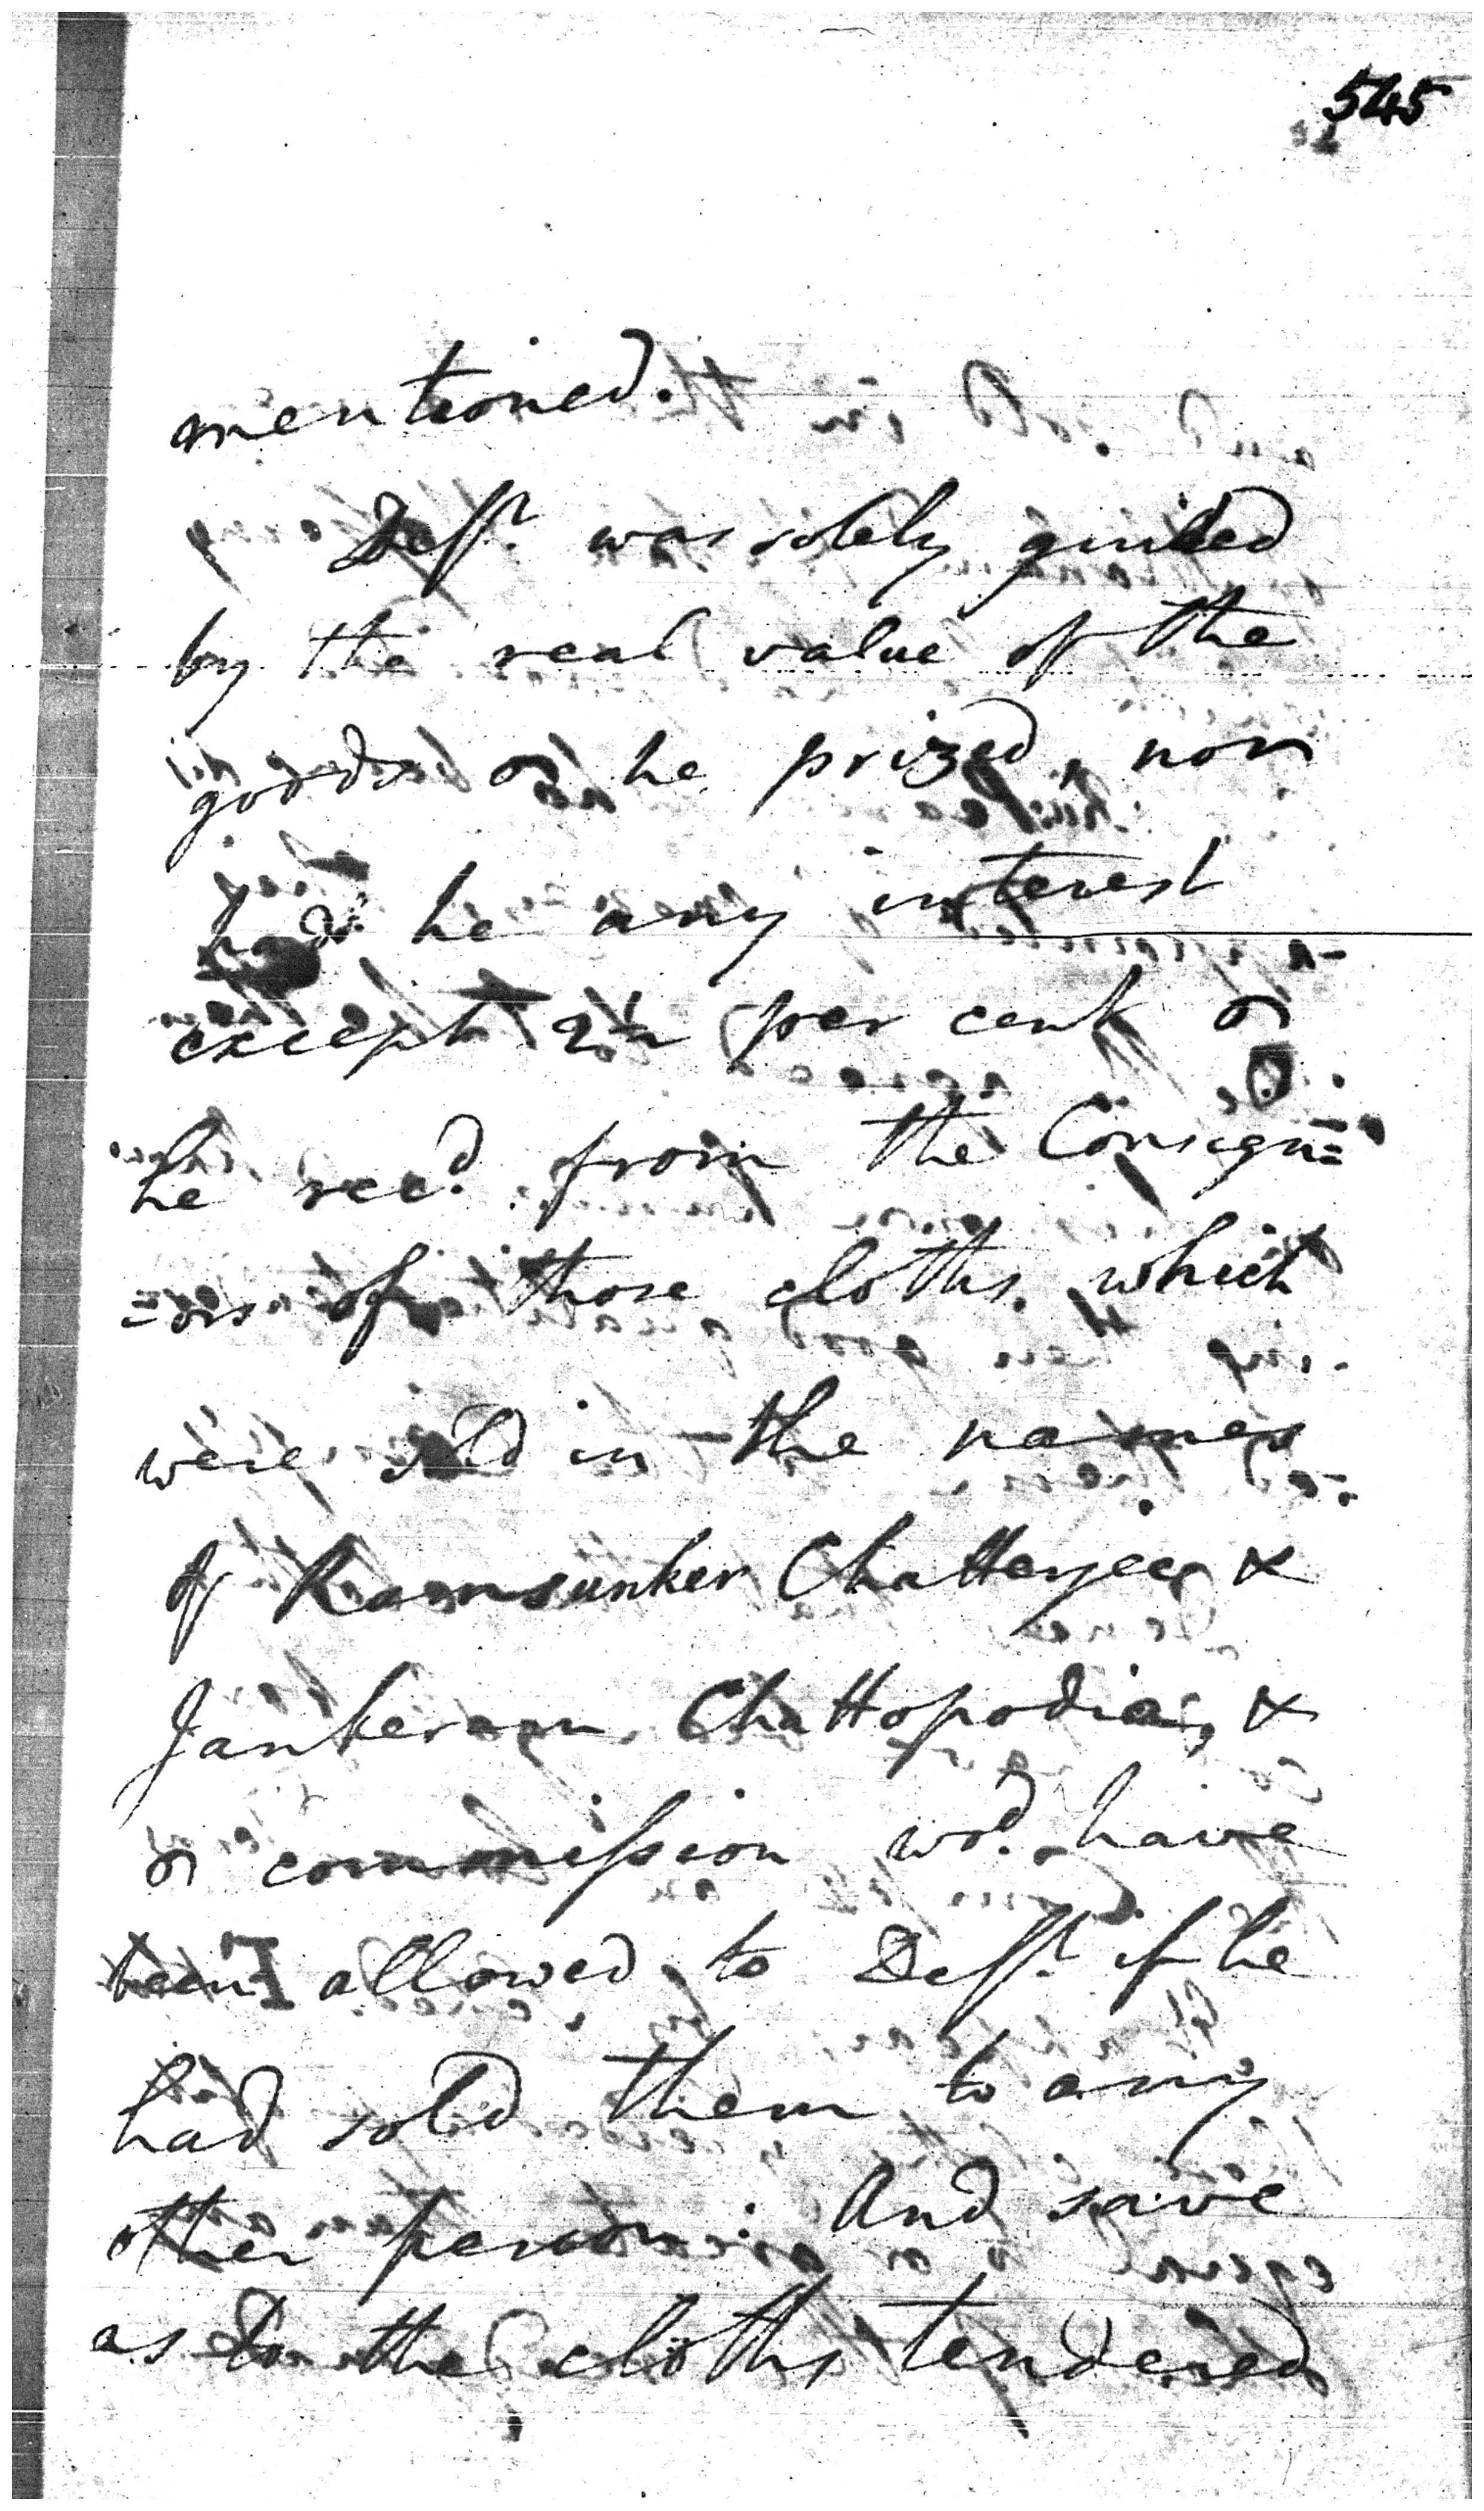 545
mentioned.
Deft. was solely guided
by the real value of the
goods on he prized, nor
had he any interest
except 2½ per cent on
he recd. from the Consign=
=ors of those cloths which
were sold in the names
of Ramsunker Chatterjee &
Jankeram Chattopodia, &
on commission wod. have
been allowed to Deft. if he
had sold them to any
other person. And save
as to the cloths tendered